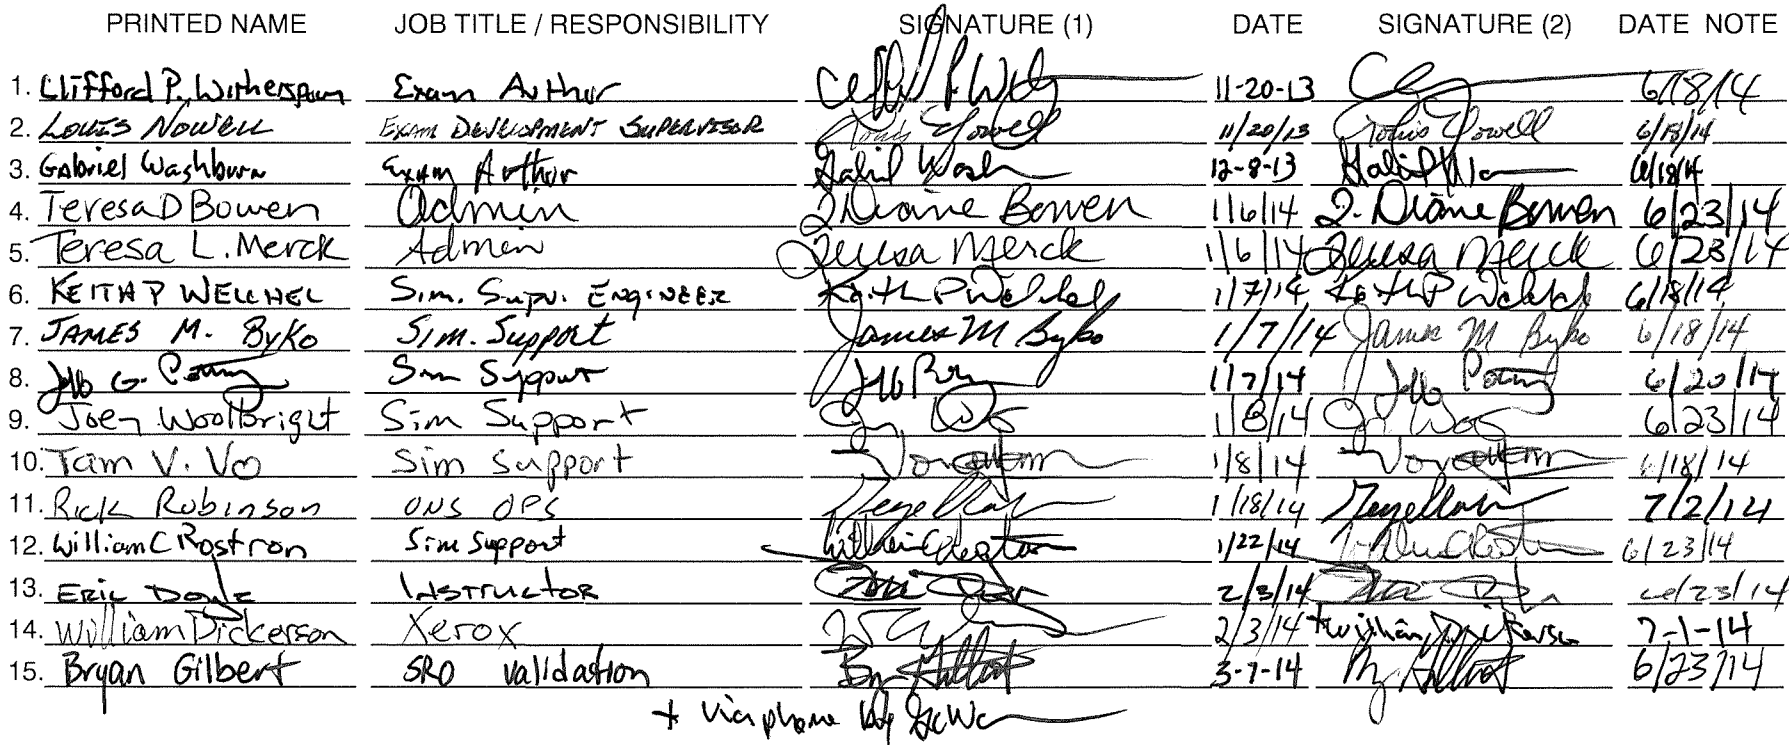 PRINTED NAME JOB TITLE / RESPONSIBILITY SIGNATURE (1) DATE SIGNATURE (2) DATE NOTE
1. Clifford P. Witherspoon Exam Author 11-20-13 6/18/14
2. LOUIS NOWELL EXAM DEVELOPMENT SUPERVISOR 11/20/13 6/18/14
3. Gabriel Washburn Exam Author 12-8-13 6/18/14
4. Teresa D Bowen Admin J. Diane Bowen 1/6/14 J. Diane Bowen 6/23/14
5. Teresa L. Merck Admin Teresa Merck 1/6/14 Teresa Merck 6/23/14
6. KEITH P WELCHEL Sim. Supv. ENGINEER Keith P Welchel 1/7/14 Keith P Welchel 6/18/14
7. JAMES M. ByKO Sim. Support James M Byko 1/7/14 James M Byko 6/18/14
8. G. Sim Support 1/7/14 6/20/14
9. Joey Woolbright Sim Support 1/8/14 6/23/14
10. Tam V. Vo Sim Support 1/8/14 6/18/14
11. Rick Robinson ONS OPS 1/18/14 7/2/14
12. William C Rostron Sim Support 1/22/14 6/23/14
13. ERIC Doyle INSTRUCTOR 2/3/14 6/23/14
14. William Dickerson Xerox 2/3/14 + William Dickerson 7-1-14
15. Bryan Gilbert SRO validation 3-7-14 6/23/14
+ Via phone by